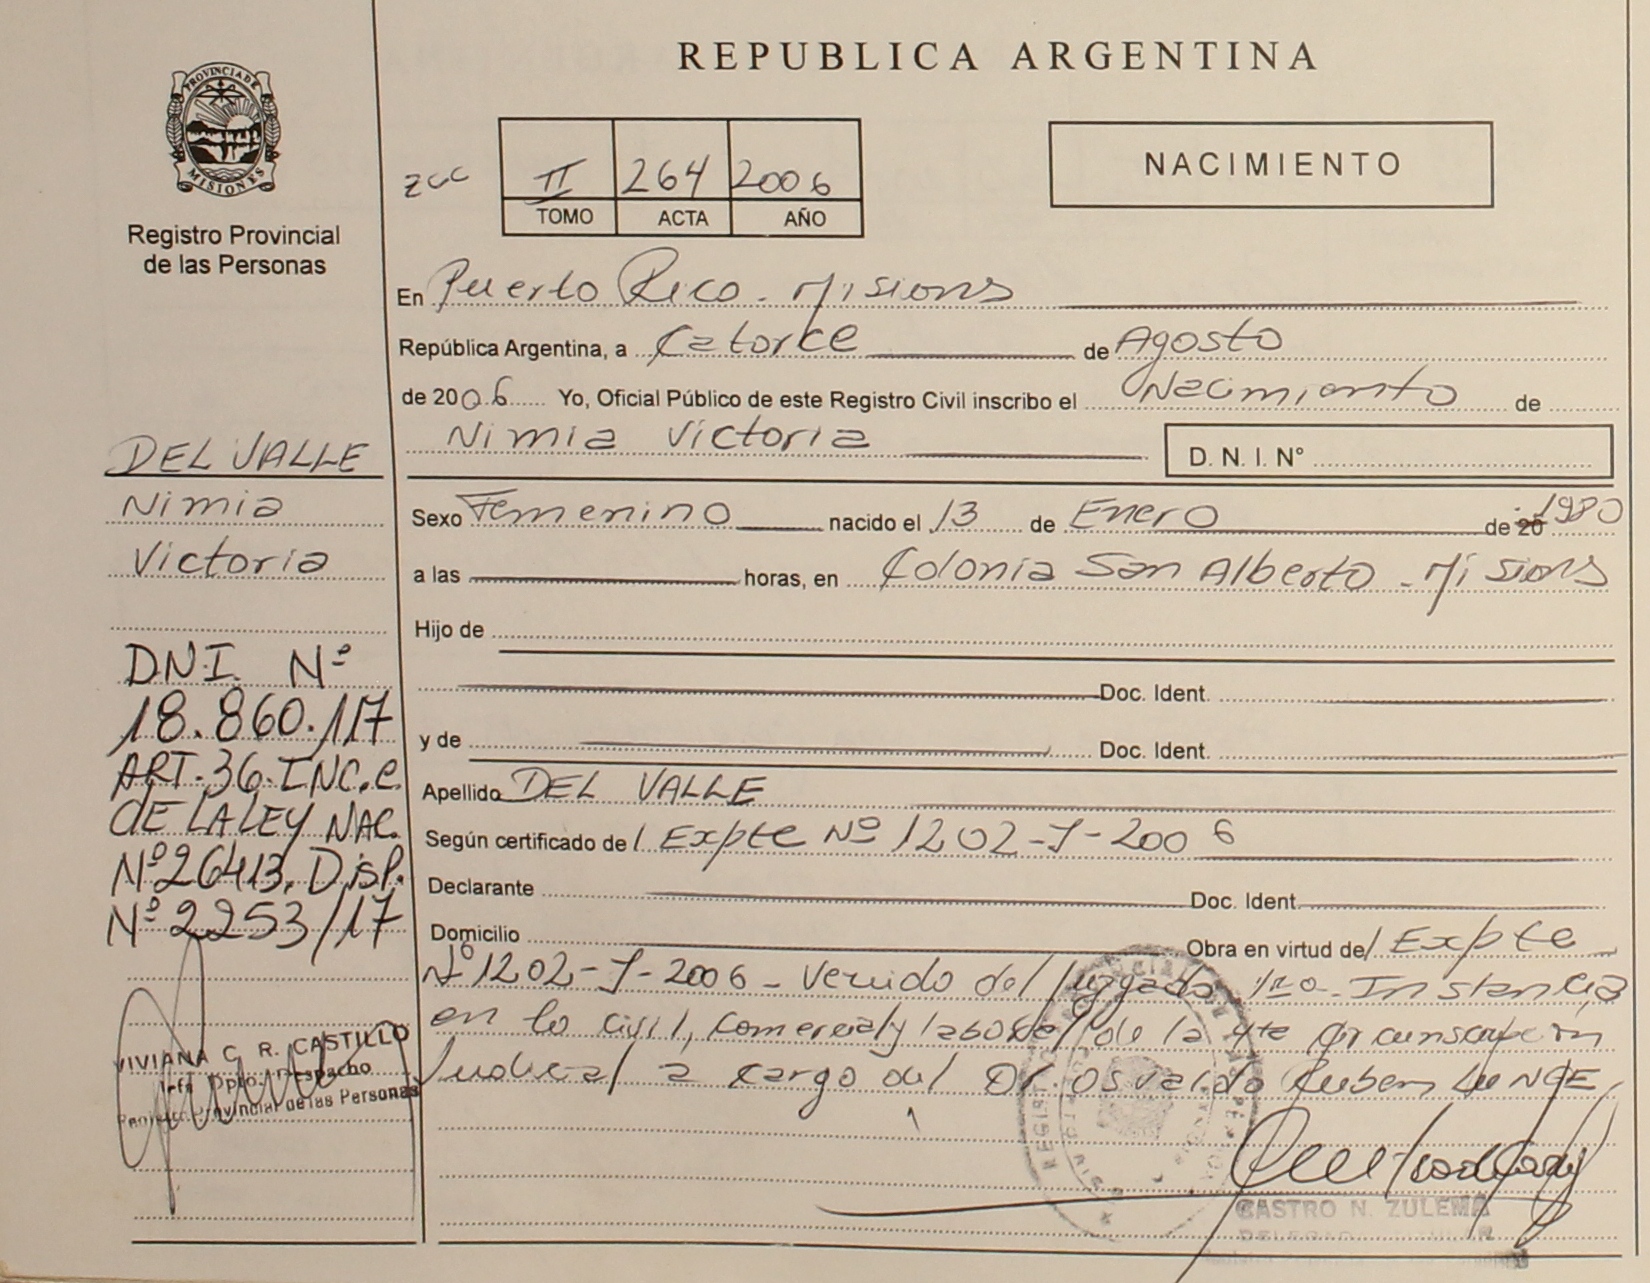 REPUBLICA ARGENTINA
PROVINCIA DE
MISIONES
Registro Provincial
de las Personas
II 264 2006
TOMO ACTA AÑO
NACIMIENTO
En Puerto Rico - Misiones
República Argentina, a Catorce de Agosto
de 2006 Yo, Oficial Público de este Registro Civil inscribo el Nacimiento de
Nimia Victoria D. N. I. N°
DEL VALLE
Nimia
Victoria
Sexo Femenino nacido el 13 de Enero de 20 1980
a las horas, en Colonia San Alberto - Misiones
Hijo de
Doc. Ident.
y de Doc. Ident.
Apellido DEL VALLE
Según certificado de Expte Nº 1202-J-2006
Declarante Doc. Ident.
Domicilio Obra en virtud de Expte
Nº 1202-J-2006 - Venido del Juzgado 1ro. Instancia
en lo civil, comercial y laboral de la 4ta circunscripción
Judicial a cargo del Dr. Osvaldo Ruben LUNGE
DNI. Nº
18.860.117
ART. 36. INC. C.
DE LA LEY NAC.
Nº 26413, Disp.
Nº 2253/17
VIVIANA C. R. CASTILLO
Dpto. Despacho
Provincial de las Personas
CASTRO N. ZULEMA